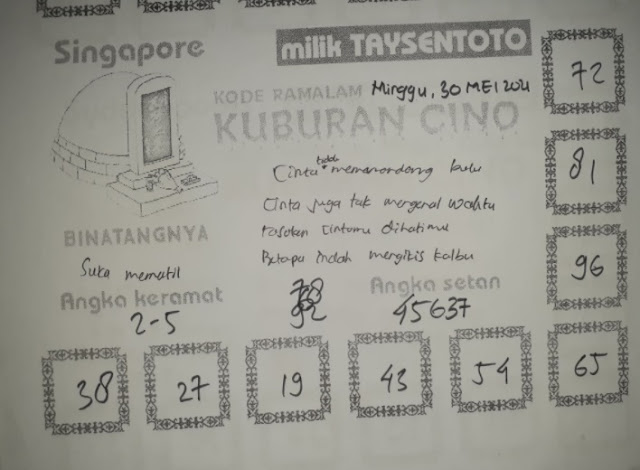 Singapore
milik TAYSENTOTO
KODE RAMALAM Minggu, 30 MEI 2021
KUBURAN CINO
72
Cinta tidak memandang bulu
Cinta juga tak mengenal waktu
81
BINATANGNYA
Suka mematil
Rasakan Cintamu dihatimu
Betapa indah mengikis kalbu
96
Angka keramat
2-5
Angka setan
45637
38
27
19
43
54
65